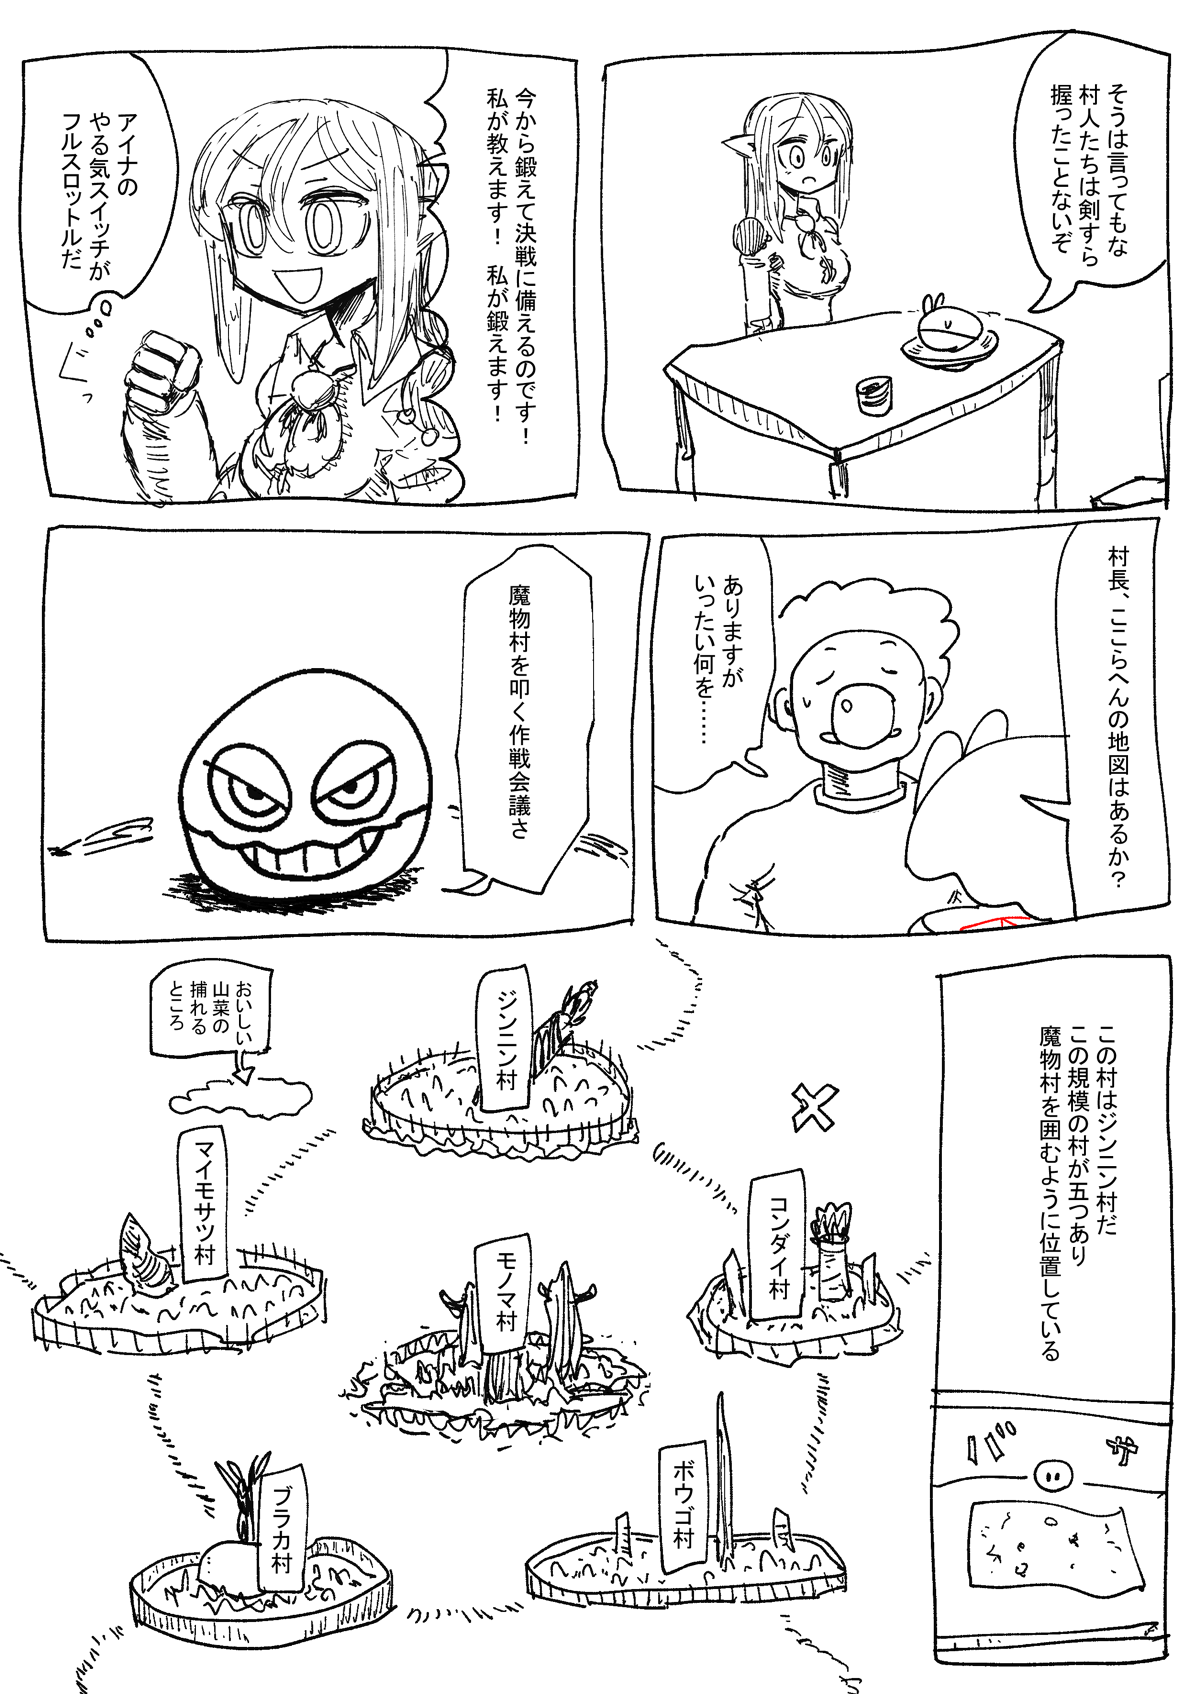 そうは言ってもな
村人たちは剣すら
握ったことないぞ
今から鍛えて決戦に備えるのです！
私が教えます！　私が鍛えます！
アイナの
やる気スイッチが
フルスロットルだ
村長、ここらへんの地図はあるか？
ありますが
いったい何を……
魔物村を叩く作戦会議さ
この村はジンニン村だ
この規模の村が五つあり
魔物村を囲むように位置している
バサ
おいしい
山菜の
捕れる
ところ
ジンニン村
コンダイ村
マイモサツ村
モノマ村
ボウゴ村
ブラカ村